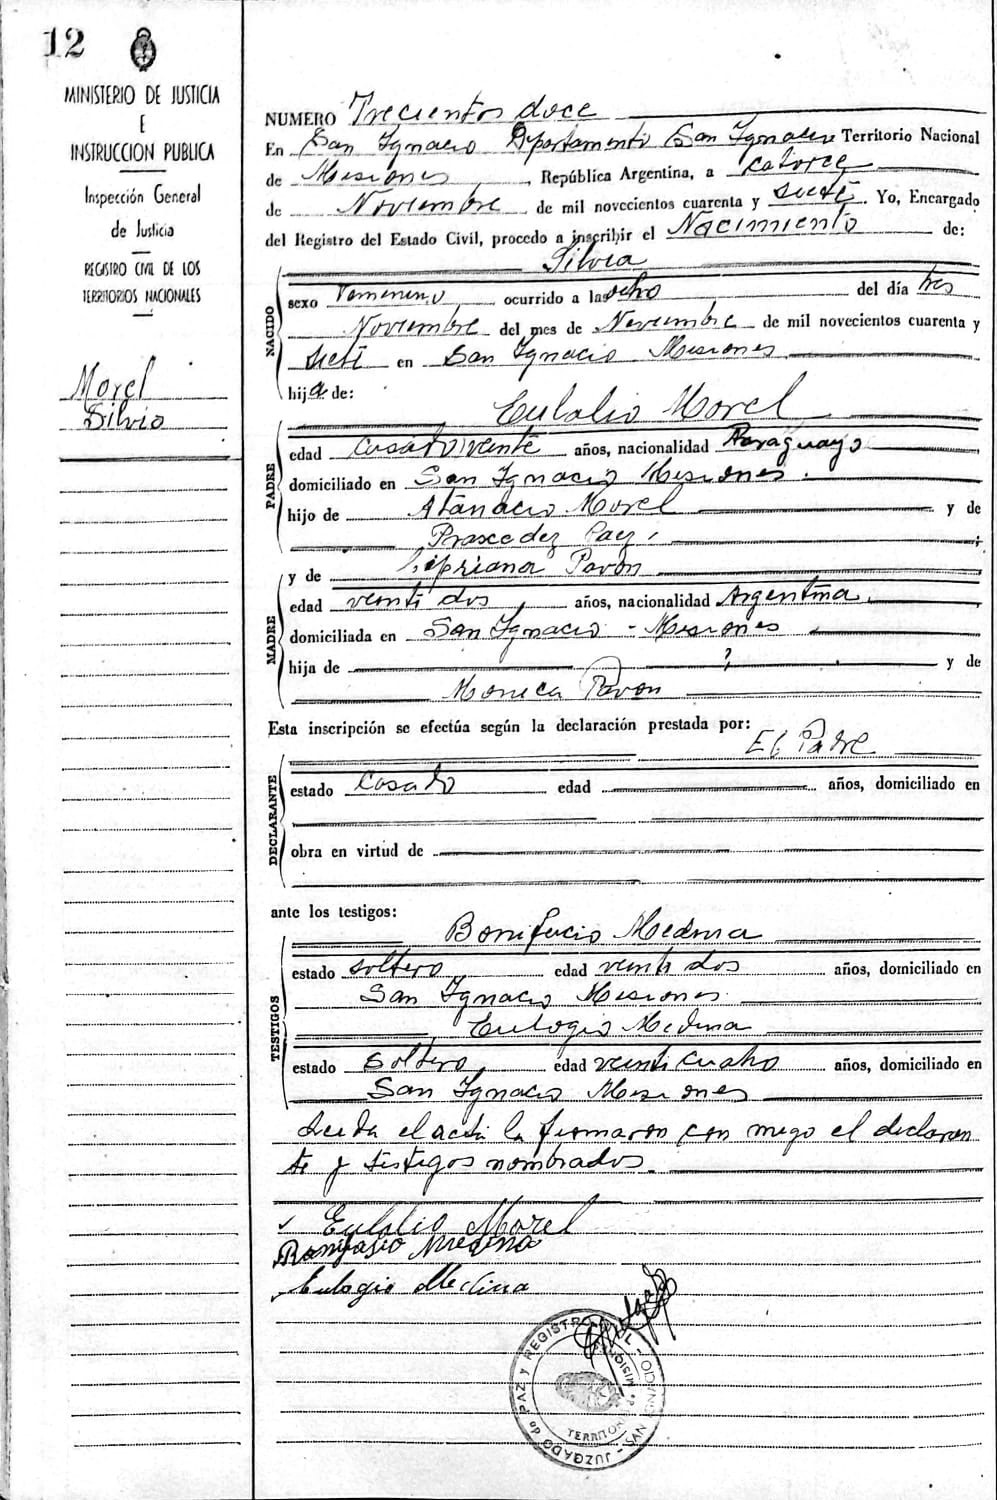 12
MINISTERIO DE JUSTICIA
E
INSTRUCCION PUBLICA
Inspección General
de Justicia
REGISTRO CIVIL DE LOS
TERRITORIOS NACIONALES
Morel
Silvia
NUMERO Trecientos doce
En San Ignacio Departamento San Ignacio Territorio Nacional
de Misiones, República Argentina, a catorce
de Noviembre de mil novecientos cuarenta y siete. Yo, Encargado
del Registro del Estado Civil, procedo a inscribir el Nacimiento de:
Silvia
NACIDO
sexo Femenino ocurrido a las ocho del día tres
Noviembre del mes de Noviembre de mil novecientos cuarenta y
siete en San Ignacio Misiones
hija de:
Eulalio Morel
PADRE
edad casado veinte años, nacionalidad Paraguayo
domiciliado en San Ignacio Misiones.
hijo de Atanacio Morel y de
Praxedez Paez;
y de Cipriana Pavon
MADRE
edad veinti dos años, nacionalidad Argentina.
domiciliada en San Ignacio - Misiones
hija de ? y de
Monica Pavon
Esta inscripción se efectúa según la declaración prestada por:
El Padre
DECLARANTE
estado Casado edad años, domiciliado en
obra en virtud de
ante los testigos:
Bonifacio Medina
TESTIGOS
estado soltero edad veinti dos años, domiciliado en
San Ignacio Misiones.
Eulogio Medina
estado Soltero edad veinti cuatro años, domiciliado en
San Ignacio Misiones
Leida el acta la firmaron con migo el declaran
te y testigos nombrados.
Eulalio Morel
Bonifasio Medina
Eulogio Medina
JUZGADO de PAZ y REGISTRO CIVIL - SAN IGNACIO -
TERRITORIO MISIONES